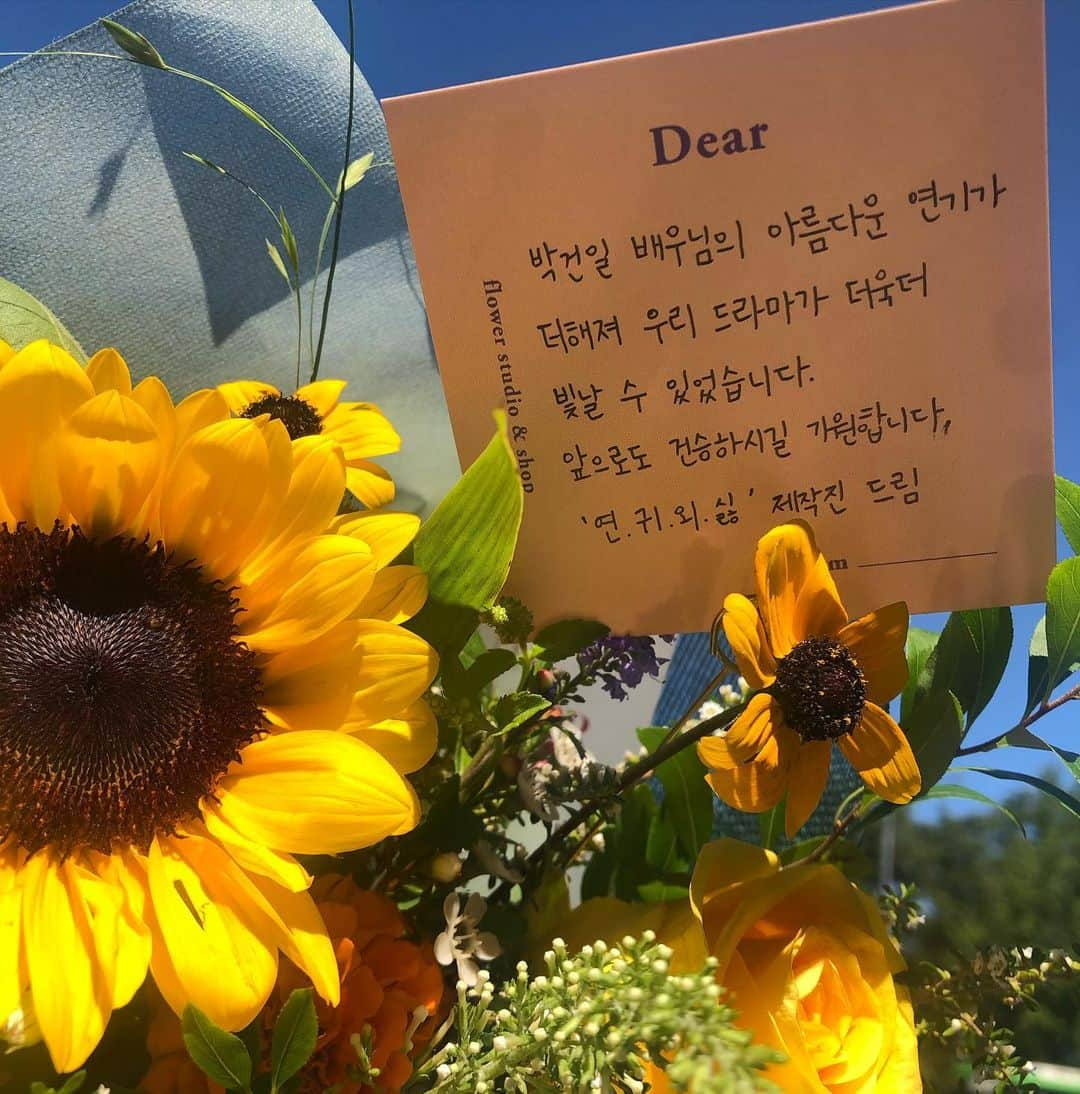 Dear
박건일 배우님의 아름다운 연기가
더해져 우리 드라마가 더욱더
빛날 수 있었습니다.
앞으로도 건승하시길 기원합니다,
'연.귀.외.싫' 제작진 드림
flower studio & shop